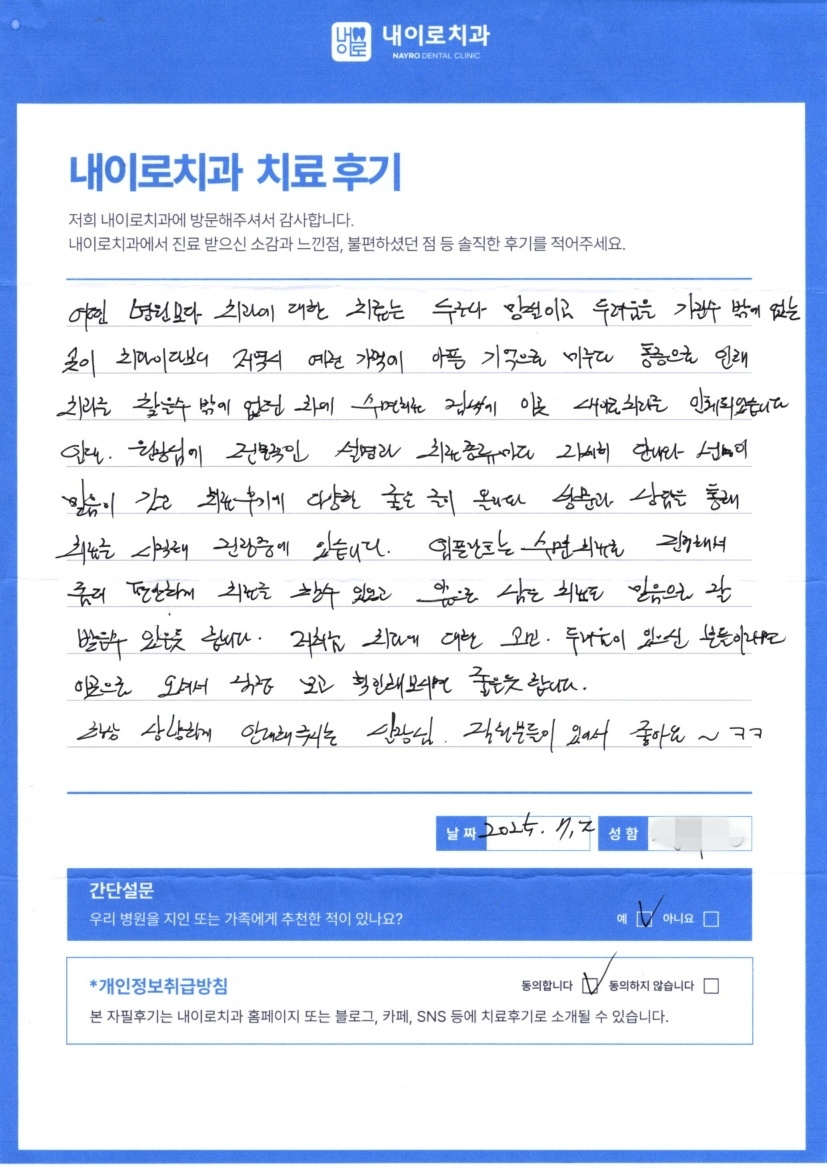 내이로
내이로치과
NAYRO DENTAL CLINIC
내이로치과 치료 후기
저희 내이로치과에 방문해주셔서 감사합니다.
내이로치과에서 진료 받으신 소감과 느낀점, 불편하셨던 점 등 솔직한 후기를 적어주세요.
어떤 병원보다 치과에 대한 치료는 누구나 망설이고 두려움을 가질수 밖에 없는
곳이 치과이다보니 저역시 예전 기억이 아픈 기억으로 미루다 통증으로 인해
치과를 찾을수 밖에 없던 차에 수면치료 검색에 이로 내이로치과를 인체되었습니다
안내. 원장님에 전문적인 설명과 치료종류마다 자세히 안내와 선생님
믿음이 갔고 치료후기에 다양한 좋은 글이 올라와 방문과 상담을 통해
치료를 시작해 진행중에 있습니다. 임플란트는 수면치료로 진행해서
좀더 편안하게 치료를 할수 있었고 앞으로 남은 치료도 믿음으로 잘
받을수 있을듯 합니다. 저처럼 치과에 대한 고민. 두려움이 있으신 분들이라면
이곳으로 오셔서 직접 보고 확인해보시면 좋을듯 합니다.
항상 상냥하게 안내해주시는 실장님. 직원분들이 있어서 좋아요 ~ ㅋㅋ
날 짜 2025. 7, 2 성 함
간단설문
우리 병원을 지인 또는 가족에게 추천한 적이 있나요? 예 아니요
*개인정보취급방침 동의합니다 동의하지 않습니다
본 자필후기는 내이로치과 홈페이지 또는 블로그, 카페, SNS 등에 치료후기로 소개될 수 있습니다.